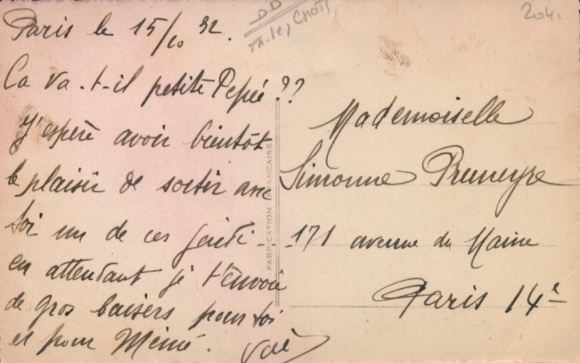 Paris le 15/10 32.
Ca va-t-il petite Pepée ??
J'espère avoir bientôt
le plaisir de sortir avec
toi un de ces jeudi -
en attendant je t'envoie
de gros baisers pour toi
et pour Mémé.
Mademoiselle
Simonne Pruneyre
171 avenue du Maine
Paris 14e
FABRICATION FRANÇAISE
204